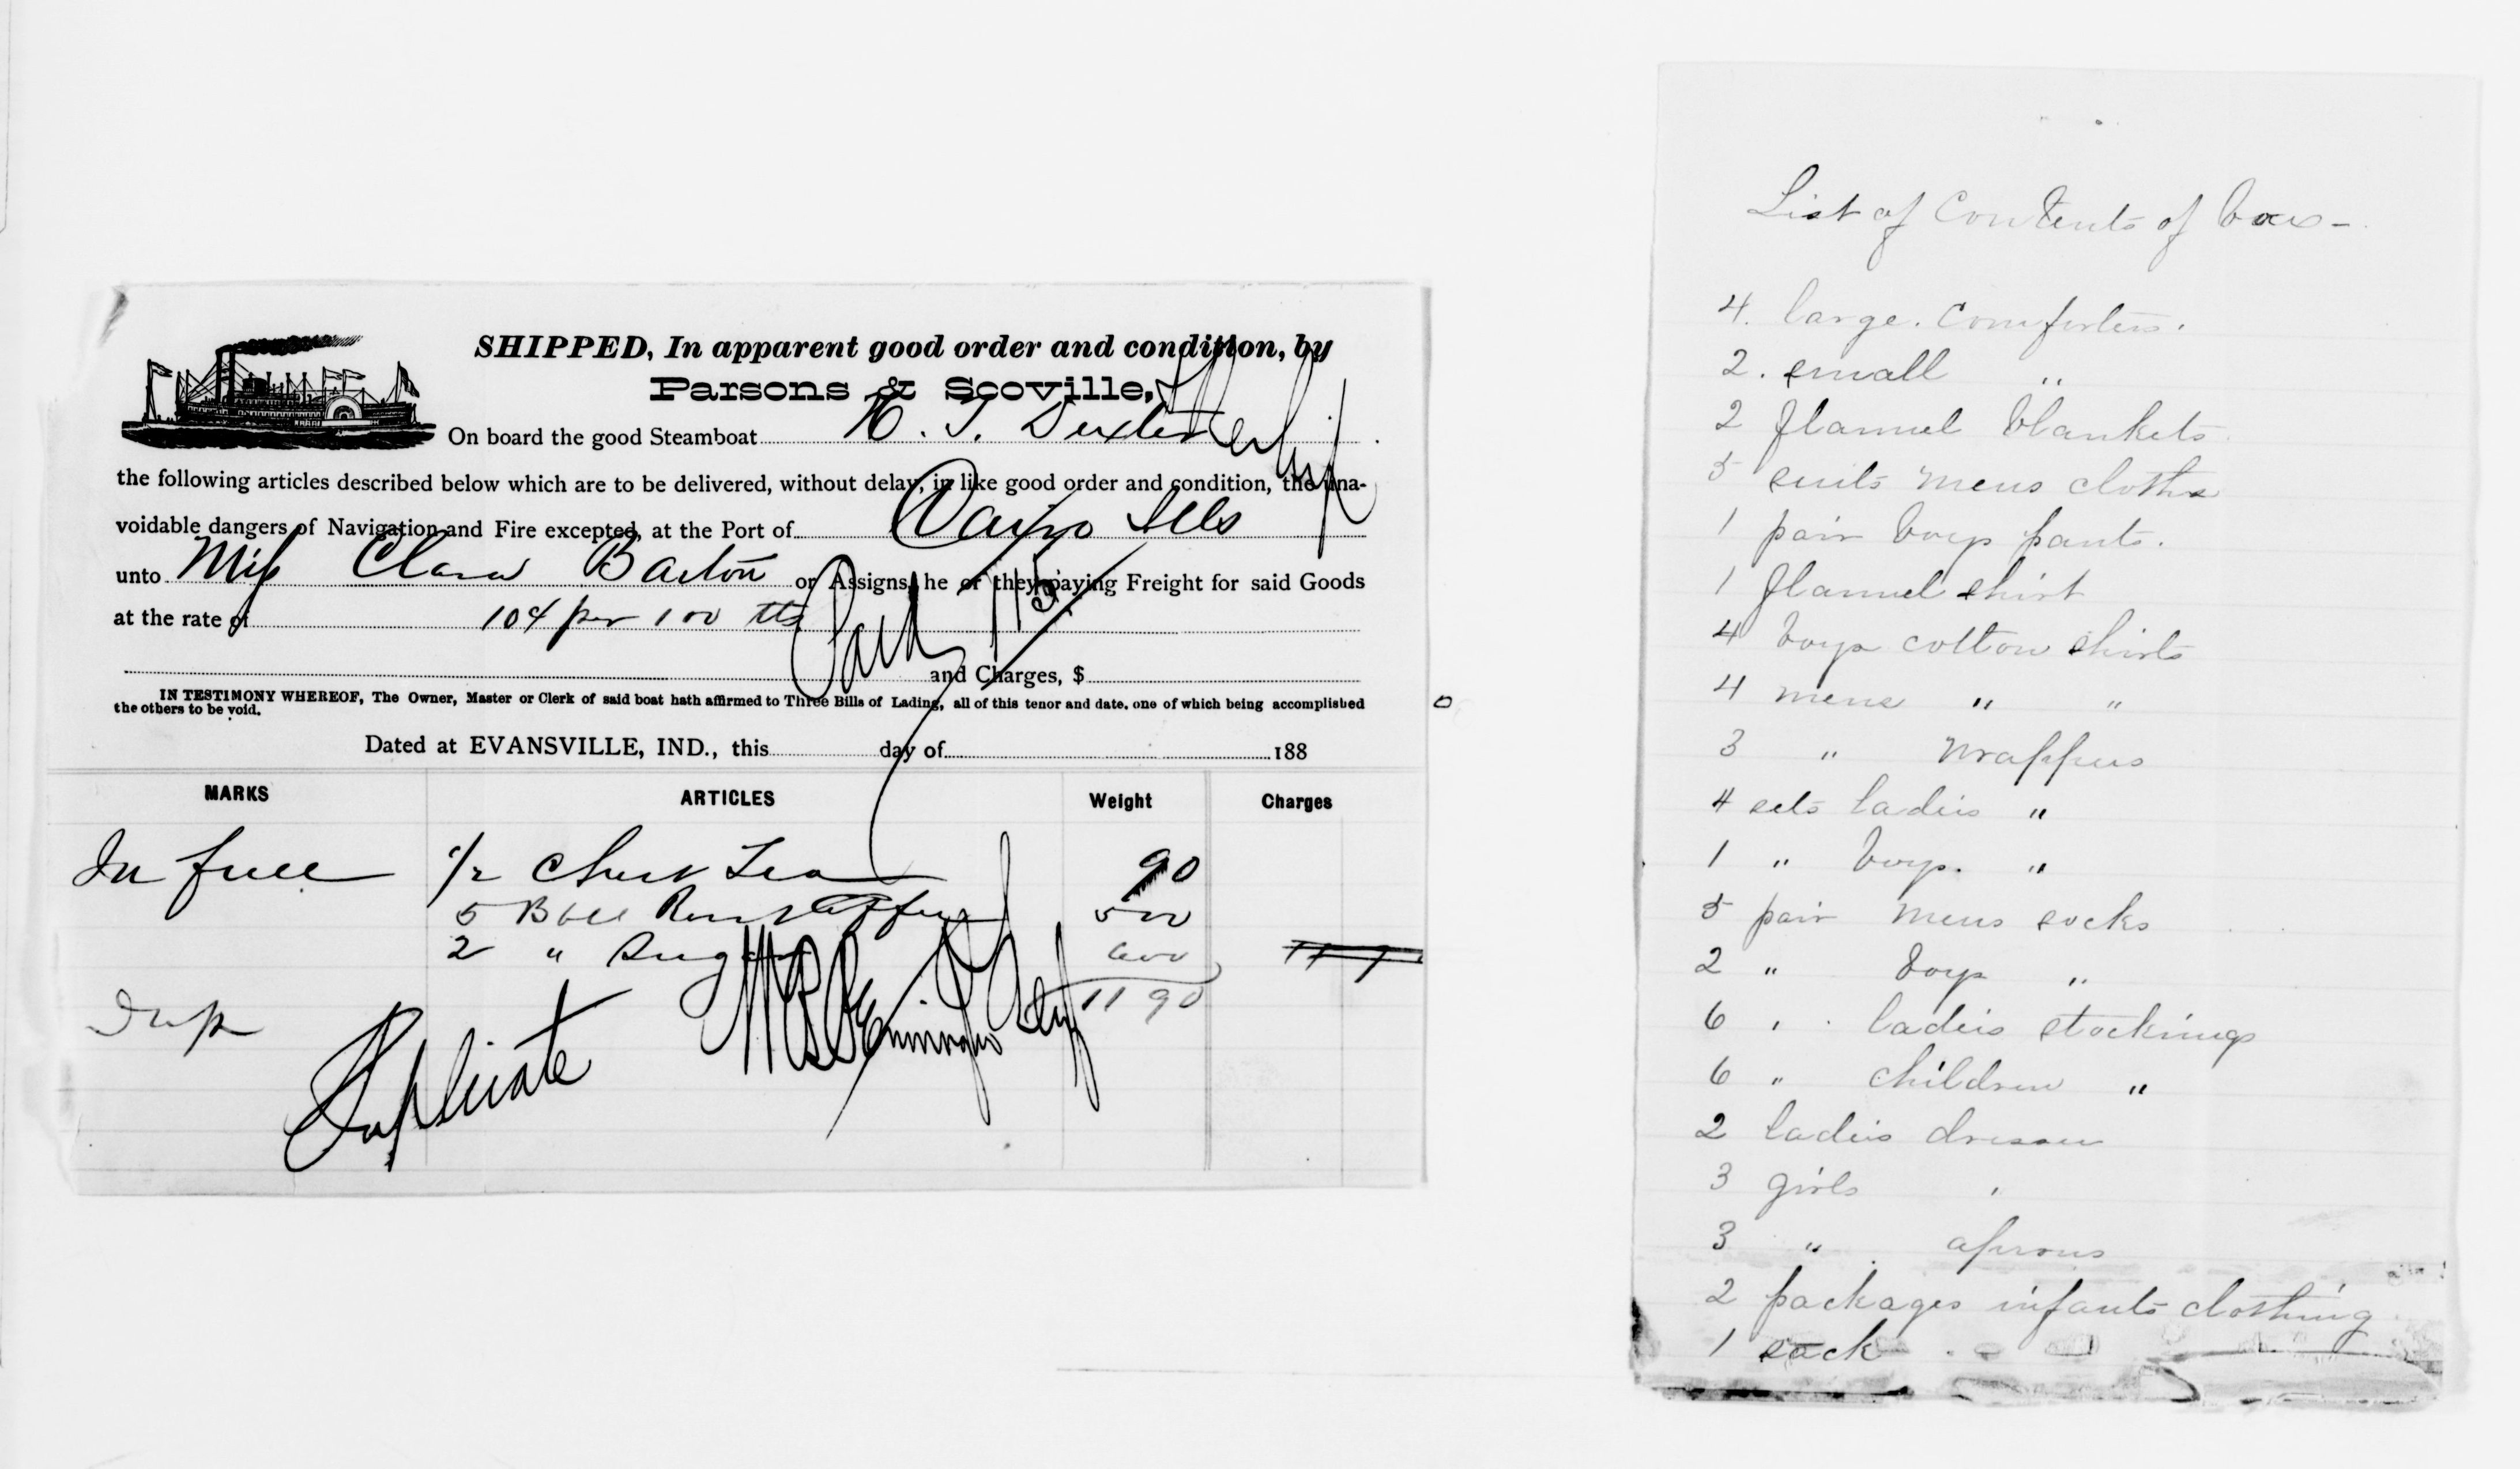 SHIPPED, In apparent good order and condition, by
Parsons & Scoville,
On board the good Steamboat
the following articles described below which are to be delivered, without delay, in like good order and condition, the una-
voidable dangers of Navigation and Fire excepted, at the Port of Cairo Ills
unto Miss Clara Barton or Assigns, he or they paying Freight for said Goods
at the rate of 10¢ per 100 lbs
Paid
and Charges, $
IN TESTIMONY WHEREOF, The Owner, Master or Clerk of said boat hath affirmed to Three Bills of Lading, all of this tenor and date, one of which being accomplished
the others to be void.
Dated at EVANSVILLE, IND., this day of 188
MARKS ARTICLES Weight Charges
In full 1/2 Chest Tea 90
5 Bbls Coffee 500
2 " Sugar 600
1190
Dup
Duplicate
List of Contents of box -
4. large. Comforters.
2. small "
2 flannel blankets
5 suits mens clothes
1 pair boys pants.
1 flannel shirt
4 boys cotton shirts
4 mens " "
3 " wrappers
4 sets ladies "
1 " boys. "
5 pair mens socks
2 " boys "
6 " ladies stockings
6 " children "
2 ladies dresses
3 girls "
3 " aprons
2 packages infants clothing
1 sack